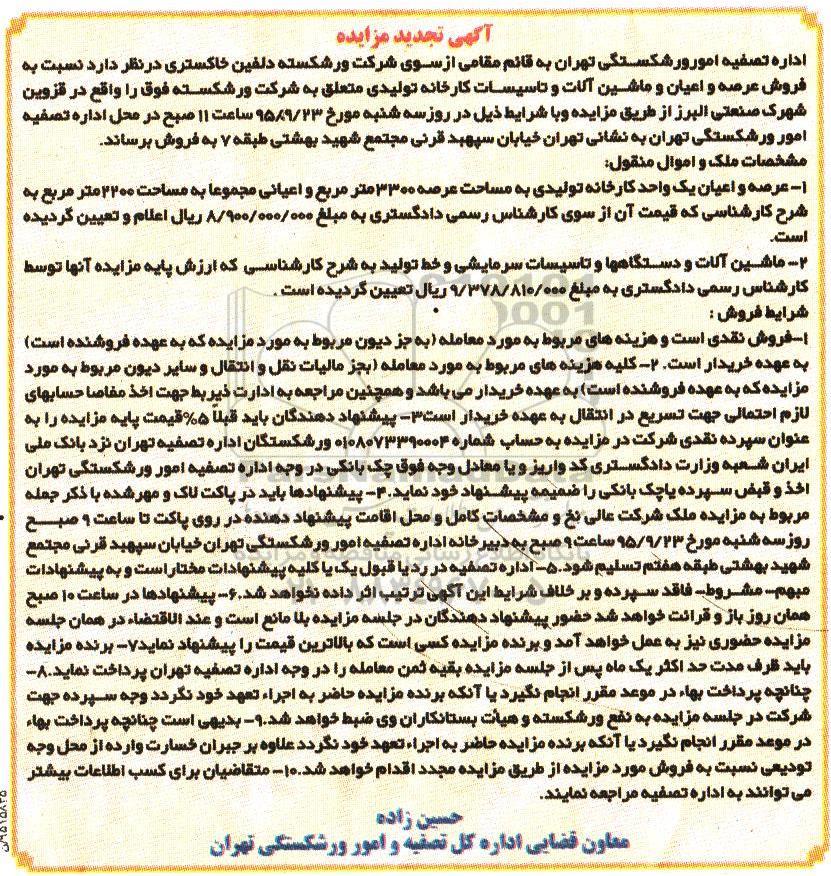 آگهی تجدید مزایده
اداره تصفیه امورورشکستگی تهران به قائم مقامی ازسوی شرکت ورشکسته دلفین خاکستری درنظر دارد نسبت به
فروش عرصه و اعیان و ماشین آلات و تاسیسات کارخانه تولیدی متعلق به شرکت ورشکسته فوق را واقع در قزوین
شهرک صنعتی البرز از طریق مزایده وبا شرایط ذیل در روزسه شنبه مورخ ۹۵/۹/۲۳ ساعت ۱۱ صبح در محل اداره تصفیه
امور ورشکستگی تهران به نشانی تهران خیابان سپهبد قرنی مجتمع شهید بهشتی طبقه ۷ به فروش برساند.
مشخصات ملک و اموال منقول:
۱- عرصه و اعیان یک واحد کارخانه تولیدی به مساحت عرصه ۳۳۰۰متر مربع و اعیانی مجموعا به مساحت ۲۲۰۰متر مربع به
شرح کارشناسی که قیمت آن از سوی کارشناس رسمی دادگستری به مبلغ ۸/۹۰۰/۰۰۰/۰۰۰ ریال اعلام و تعیین گردیده
است.
۲- ماشین آلات و دستگاهها و تاسیسات سرمایشی و خط تولید به شرح کارشناسی که ارزش پایه مزایده آنها توسط
کارشناس رسمی دادگستری به مبلغ ۹/۳۷۸/۸۱۰/۰۰۰ ریال تعیین گردیده است .
شرایط فروش :
۱-فروش نقدی است و هزینه های مربوط به مورد معامله (به جز دیون مربوط به مورد مزایده که به عهده فروشنده است)
به عهده خریدار است. ۲- کلیه هزینه های مربوط به مورد معامله (بجز مالیات نقل و انتقال و سایر دیون مربوط به مورد
مزایده که به عهده فروشنده است) به عهده خریدار می باشد و همچنین مراجعه به ادارت ذیربط جهت اخذ مفاصا حسابهای
لازم احتمالی جهت تسریع در انتقال به عهده خریدار است۳- پیشنهاد دهندگان باید قبلاً ۵%قیمت پایه مزایده را به
عنوان سپرده نقدی شرکت در مزایده به حساب شماره ۰۱۰۸۰۷۳۳۹۰۰۰۴ ورشکستگان اداره تصفیه تهران نزد بانک ملی
ایران شعبه وزارت دادگستری کد واریز و یا معادل وجه فوق چک بانکی در وجه اداره تصفیه امور ورشکستگی تهران
اخذ و قبض سپرده یاچک بانکی را ضمیمه پیشنهاد خود نماید.۴- پیشنهادها باید در پاکت لاک و مهرشده با ذکر جمله
مربوط به مزایده ملک شرکت عالی یخ و مشخصات کامل و محل اقامت پیشنهاد دهنده در روی پاکت تا ساعت ۹ صبح
روزسه شنبه مورخ ۹۵/۹/۲۳ ساعت۹ صبح به دبیرخانه اداره تصفیه امور ورشکستگی تهران خیابان سپهبد قرنی مجتمع
شهید بهشتی طبقه هفتم تسلیم شود.۵- اداره تصفیه در رد یا قبول یک یا کلیه پیشنهادات مختاراست و به پیشنهادات
مبهم- مشروط- فاقد سپرده و بر خلاف شرایط این آگهی ترتیب اثر داده نخواهد شد.۶- پیشنهادها در ساعت ۱۰ صبح
همان روز باز و قرائت خواهد شد حضور پیشنهاد دهندگان در جلسه مزایده بلا مانع است و عند الاقتضاء در همان جلسه
مزایده حضوری نیز به عمل خواهد آمد و برنده مزایده کسی است که بالاترین قیمت را پیشنهاد نماید۷- برنده مزایده
باید ظرف مدت حد اکثر یک ماه پس از جلسه مزایده بقیه ثمن معامله را در وجه اداره تصفیه تهران پرداخت نماید.۸-
چنانچه پرداخت بهاء در موعد مقرر انجام نگیرد یا آنکه برنده مزایده حاضر به اجراء تعهد خود نگردد وجه سپرده جهت
شرکت در جلسه مزایده به نفع ورشکسته و هیأت بستانکاران وی ضبط خواهد شد.۹- بدیهی است چنانچه پرداخت بهاء
در موعد مقرر انجام نگیرد یا آنکه برنده مزایده حاضر به اجراء تعهد خود نگردد علاوه بر جبران خسارت وارده از محل وجه
تودیعی نسبت به فروش مورد مزایده از طریق مزایده مجدد اقدام خواهد شد.۱۰- متقاضیان برای کسب اطلاعات بیشتر
می توانند به اداره تصفیه مراجعه نمایند.
حسین زاده
معاون قضایی اداره کل تصفیه و امور ورشکستگی تهران